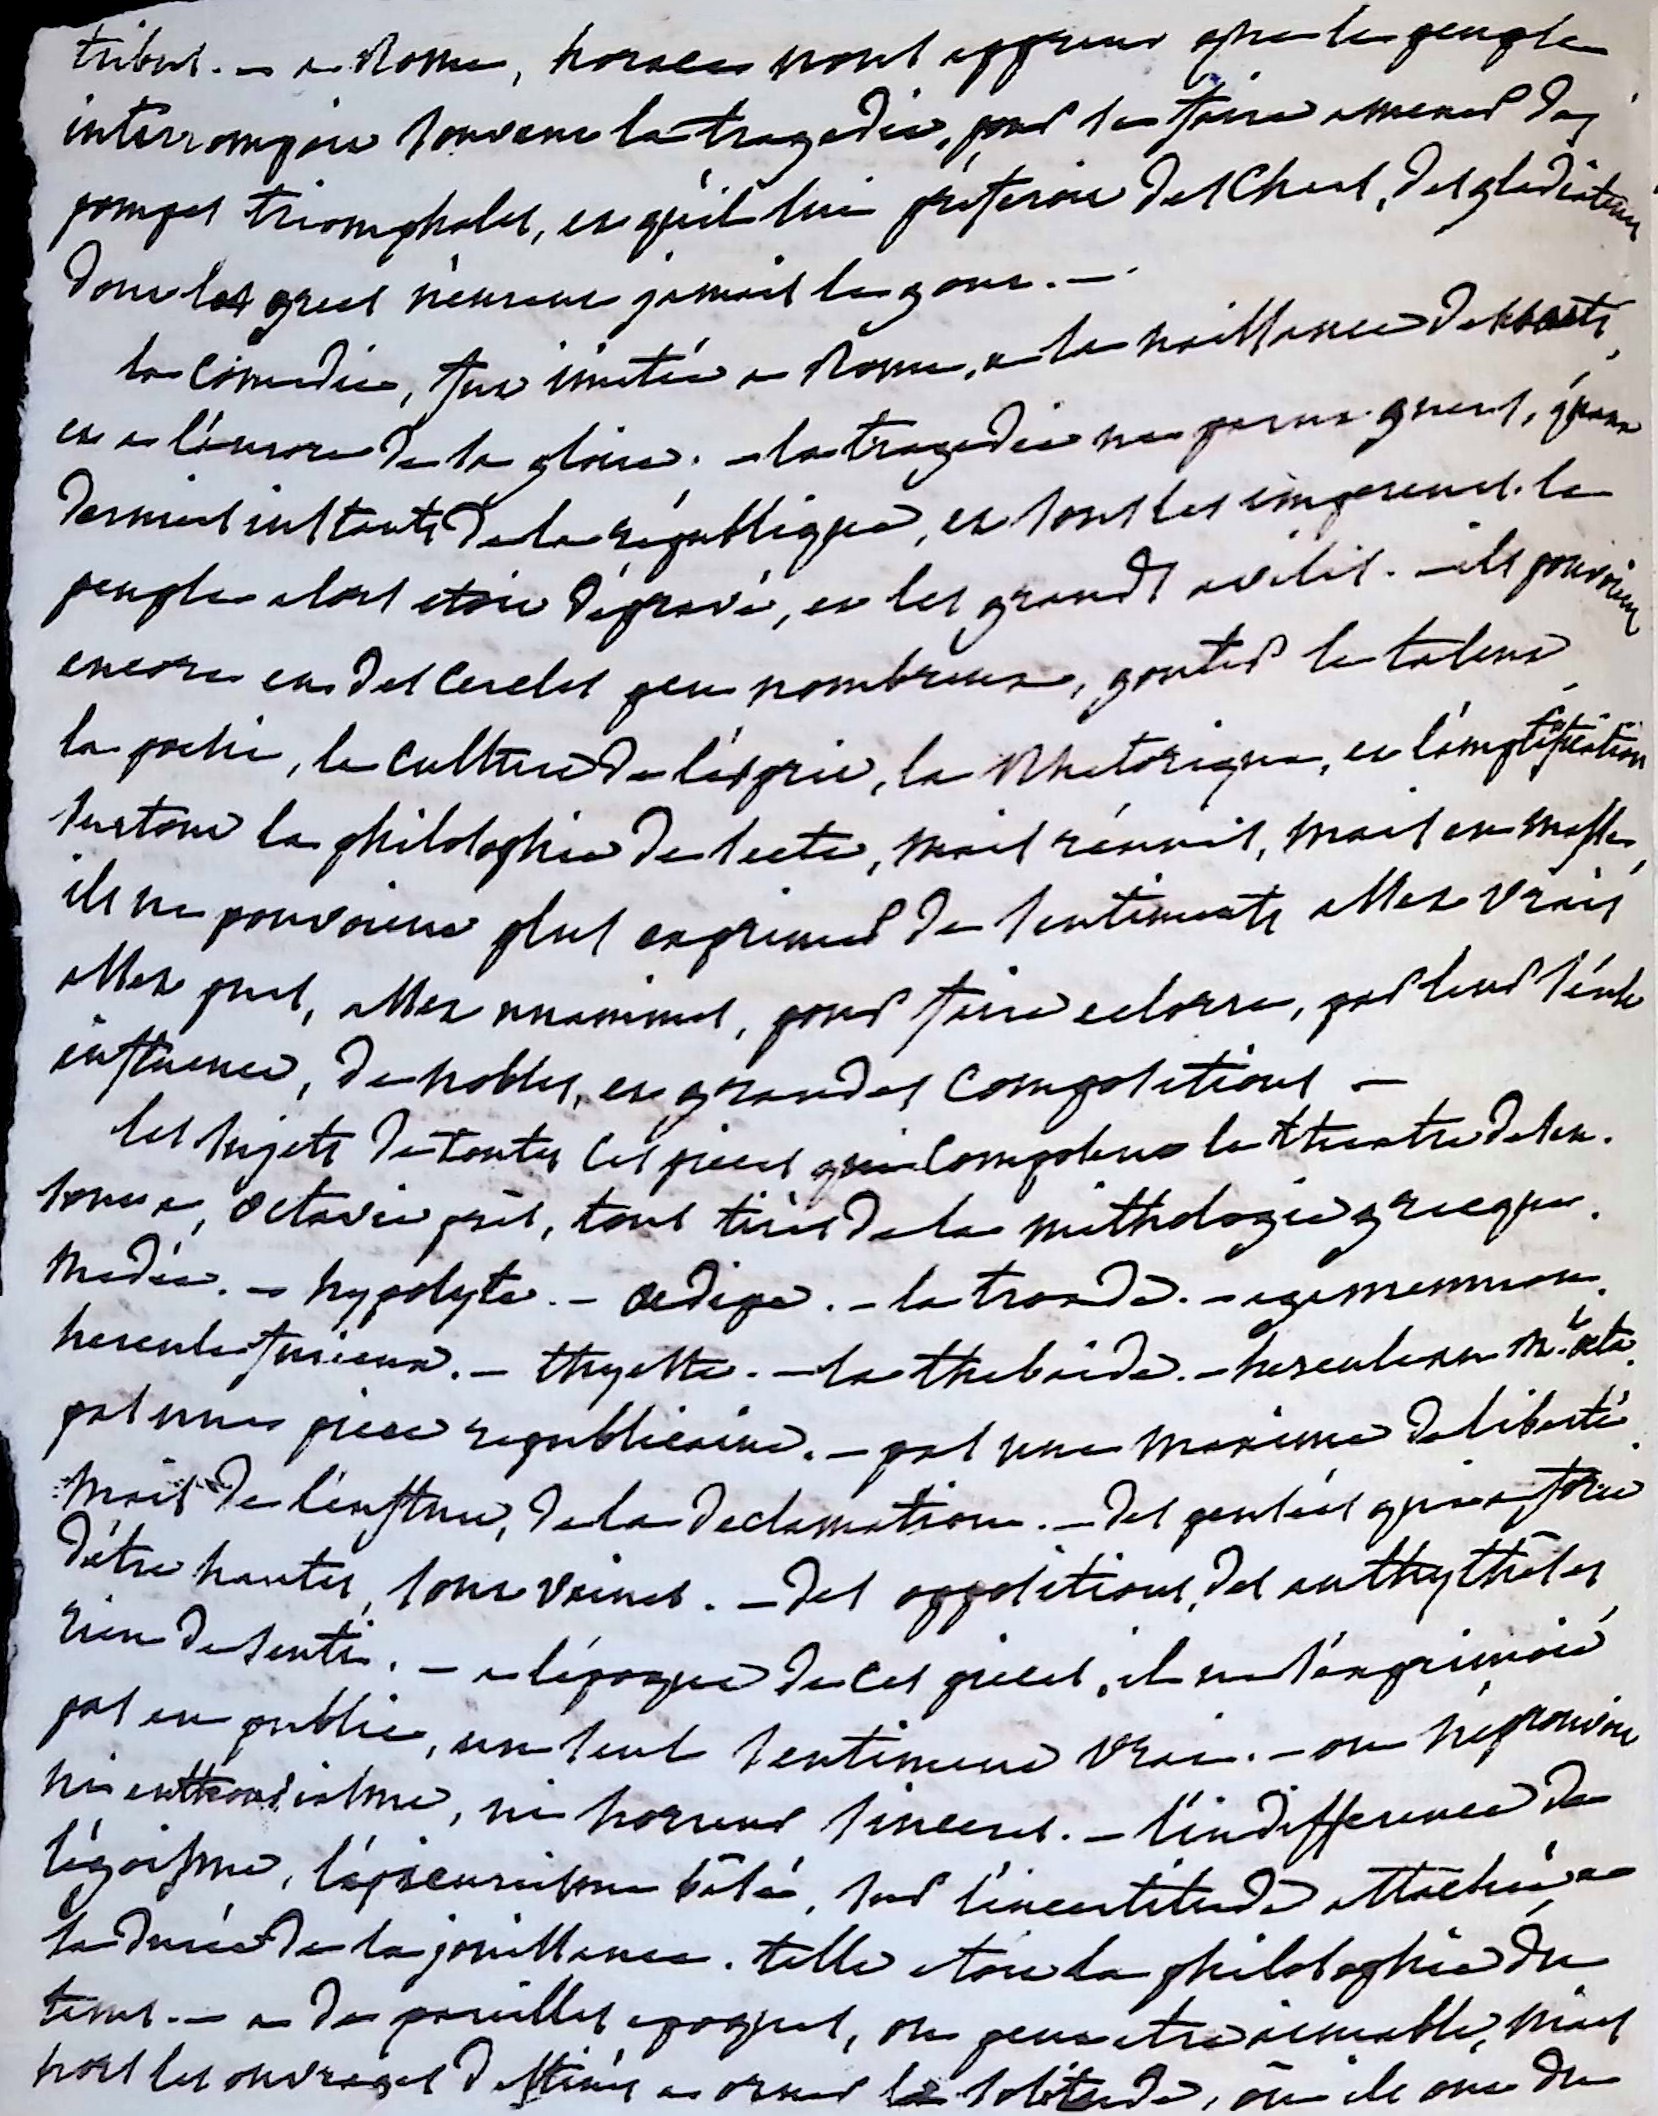 tribus. — a Rome, horace nous apprend que le peuple
interrompoit souvent la tragedie, pour se faire amener des
pompes triomphales, et qu'il lui préferoit des chars, des gladiateurs
dont les grecs n'eurent jamais le gout. —
la comédie, fut imitée a Rome, a la naissance des arts,
et a l'aurore de la gloire. — la tragedie ne parut gueres, qu'aux
derniers instants de la république, et sous les empereurs. le
peuple alors etoit dépravé, et les grands avilis. — ils pouvoient
encore en des cercles peu nombreux, gouter le talent,
la poesie, la culture de l'esprit, la Rhetorique, et l'amplification
surtout la philosophie de secte, mais réunis, mais en masse,
ils ne pouvoient plus exprimer de sentiments assez vrais
assez purs, assez unanimes, pour faire eclorre, par leur seule
influence, de nobles, et grandes compositions —
les sujets de toutes ces pieces qui composent le theatre de sen.
sont, octavie près, tous tirés de la mithologie grecque.
Medée. — hypolyte. — oedipe. — la troade. — agamemnon.
hercule furieux. — thyeste. — la thebaide. — hercule au M.t oeta.
pas une piece republicaine. — pas une maxime de liberté.
mais de l'enflure, de la declamation. — des pensées qui a force
d'être hautes, sont vaines. — des oppositions, des anthythèses,
rien de senti. — a l'époque de ces pieces, il ne s'exprimoit
pas en public, un seul sentiment vrai. — on n'éprouvoit
ni enthousiasme, ni horreur sinceres. — l'indifference de
l'égoisme, l'épicurisme basé, sur l'incertitude attachée a
la durée de la jouissance. telle etoit la philosophie du
tems. — a de pareilles epoques, on peut etre aimable, mais
hors les ouvrages destinés a orner la solitude, où ils ont du